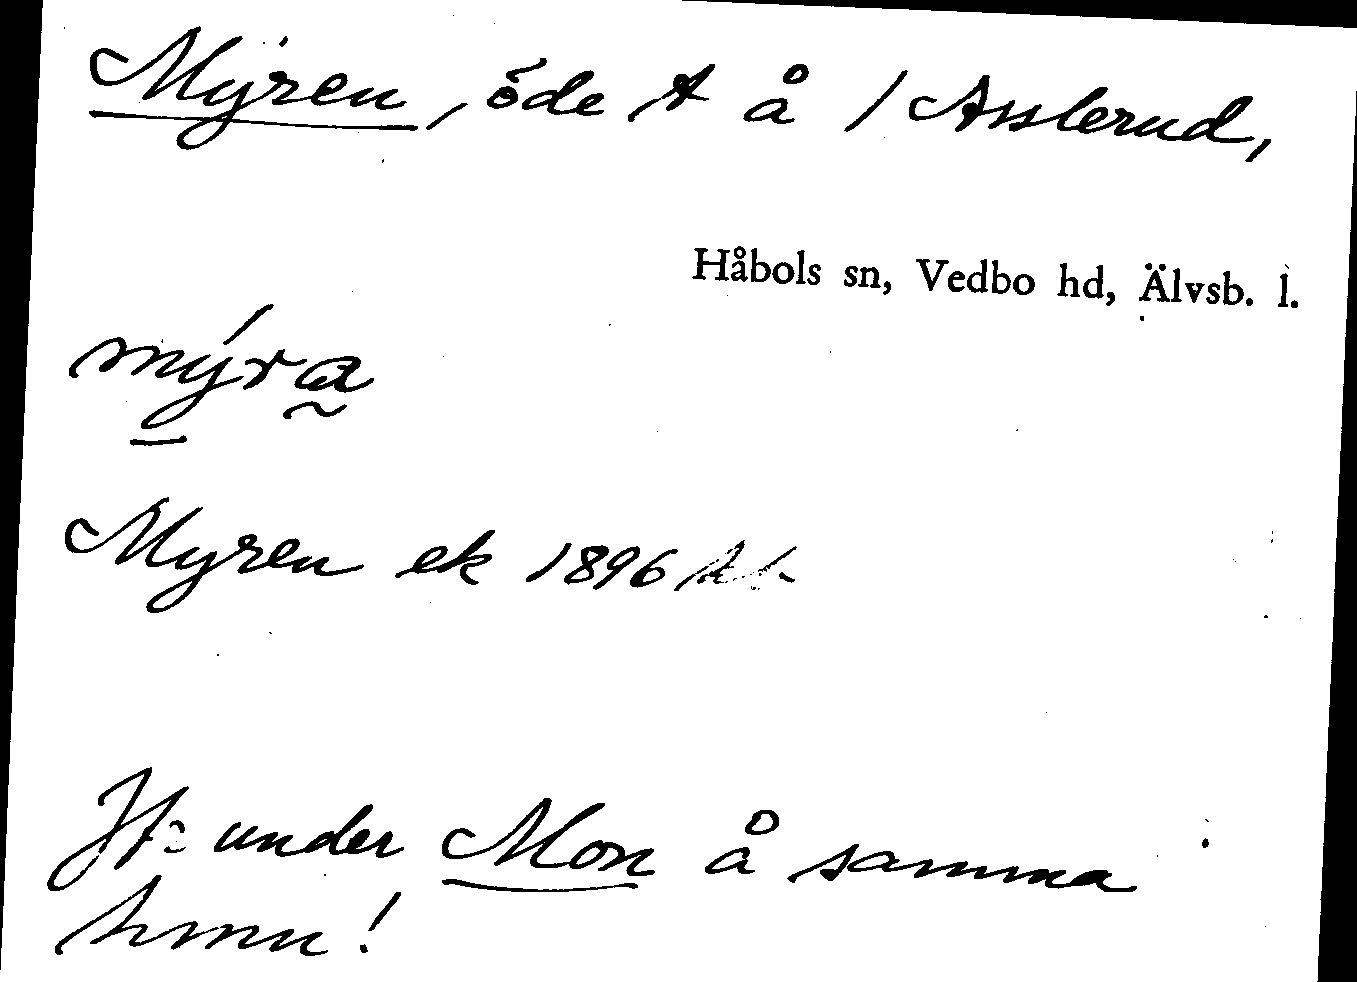 Myren, öde t å 1 Asslerud,
Håbols sn, Vedbo hd, Älvsb. l.
mýra
Myren ek 1896
Jf. under Mon å samma
hmn!